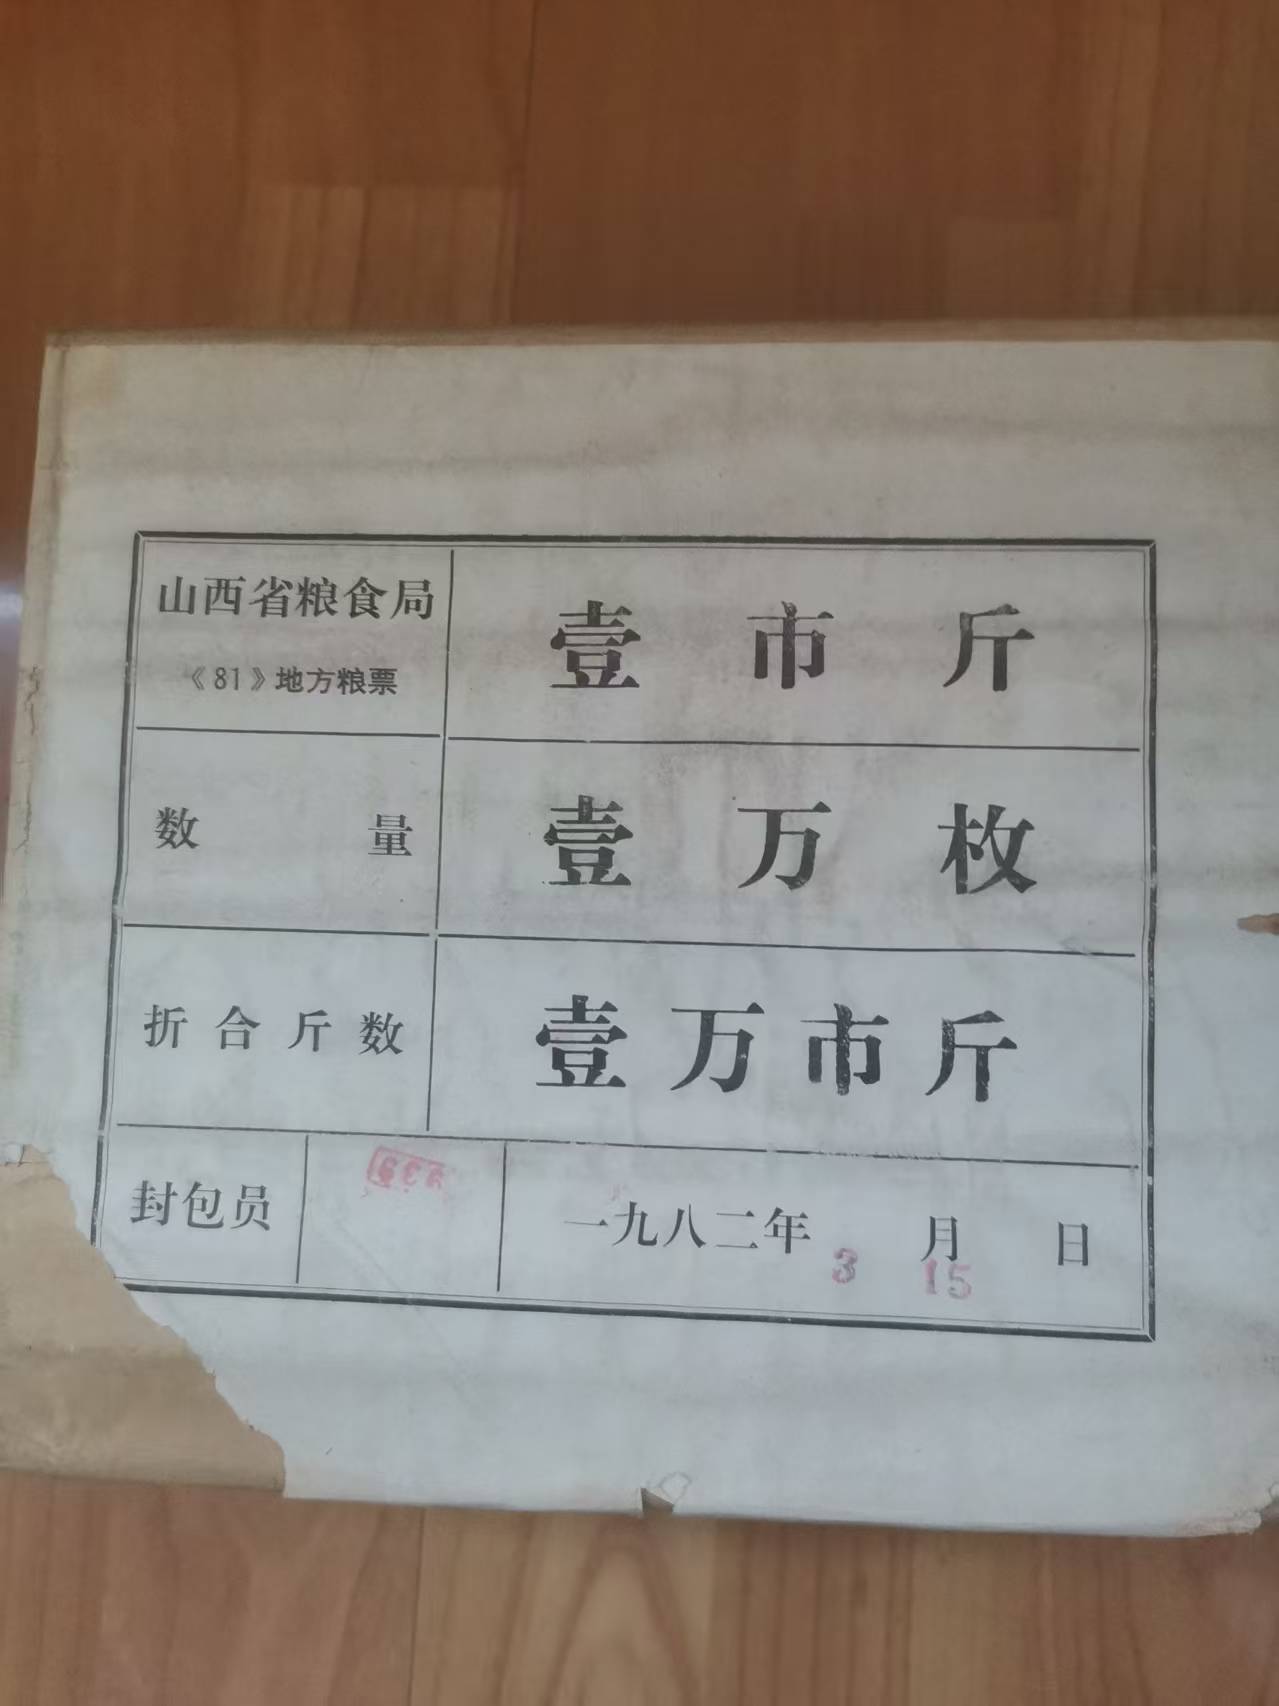 山西省粮食局
《81》地方粮票
壹市斤
数量
壹万枚
折合斤数
壹万市斤
封包员
一九八二年3月15日